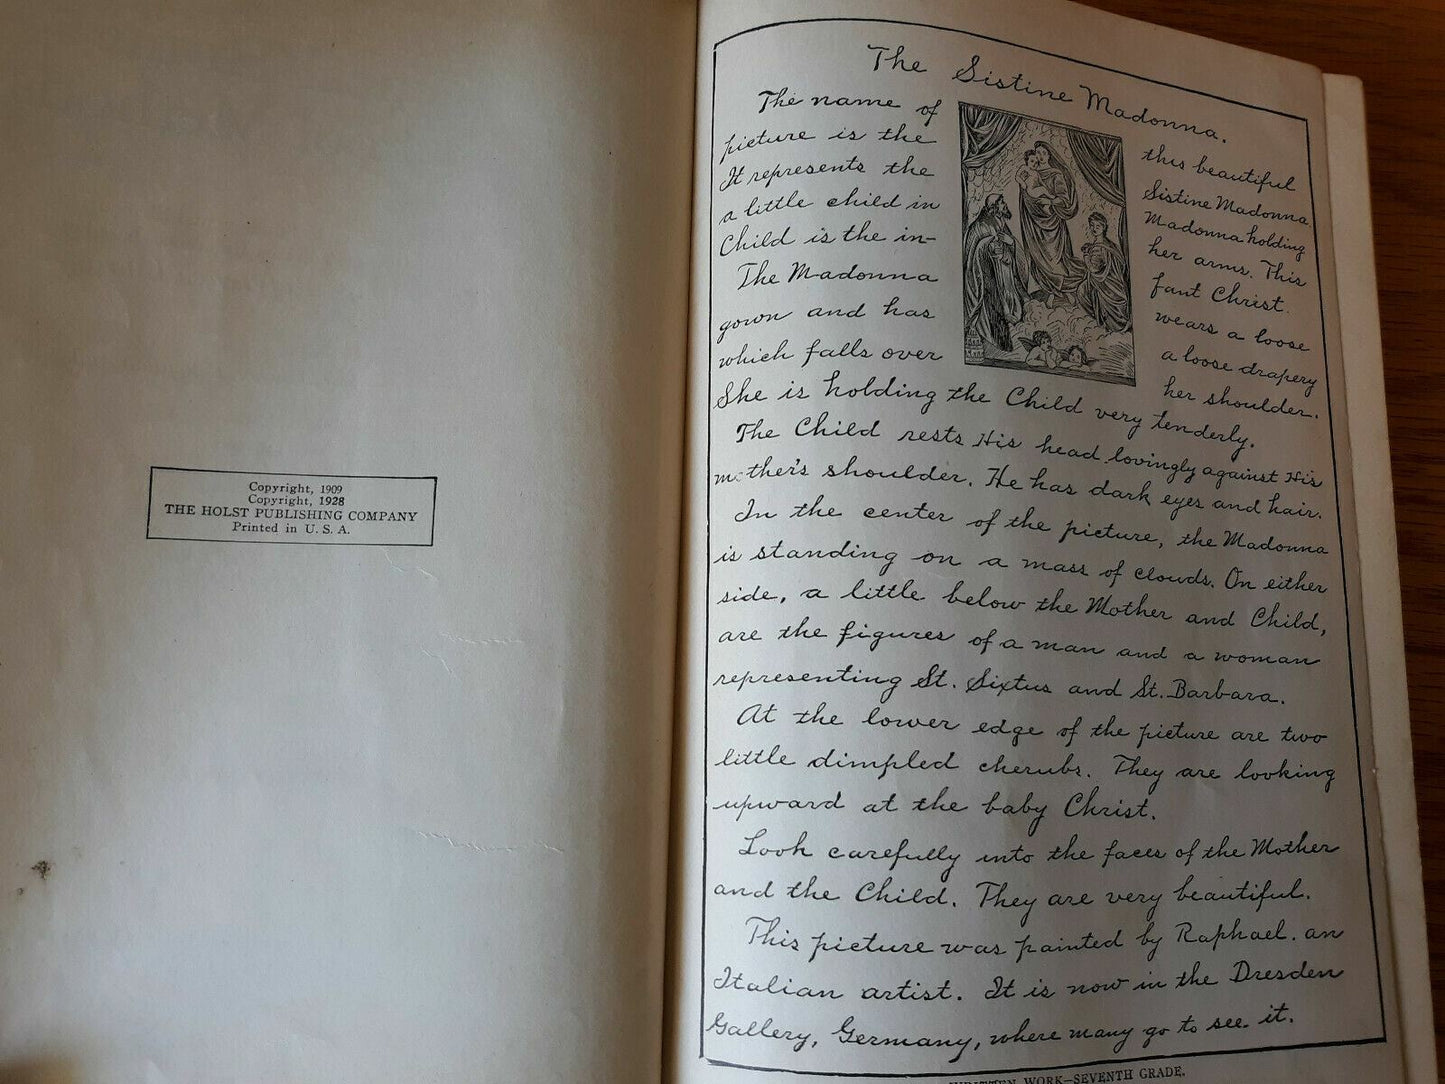 Copyright, 1909
Copyright, 1928
THE HOLST PUBLISHING COMPANY
Printed in U. S. A.
The Sistine Madonna.
The name of this beautiful
picture is the Sistine Madonna
It represents the Madonna holding
a little child in her arms. This
Child is the in- fant Christ.
The Madonna wears a loose
gown and has a loose drapery
which falls over her shoulder.
She is holding the Child very tenderly.
The Child rests His head lovingly against His
mother's shoulder. He has dark eyes and hair.
In the center of the picture, the Madonna
is standing on a mass of clouds. On either
side, a little below the Mother and Child,
are the figures of a man and a woman
representing St. Sixtus and St. Barbara.
At the lower edge of the picture are two
little dimpled cherubs. They are looking
upward at the baby Christ.
Look carefully into the faces of the Mother
and the Child. They are very beautiful.
This picture was painted by Raphael. an
Italian artist. It is now in the Dresden
Gallery, Germany, where many go to see it.
WRITTEN WORK—SEVENTH GRADE.